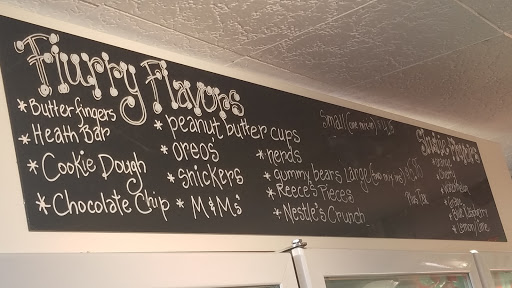 Flurry Flavors
* Butterfingers
* Heath Bar
* Cookie Dough
* Chocolate Chip
* peanut butter cups
* oreos
* snickers
* M&M's
* nerds
* gummy bears
* Reece's Pieces
* Nestle's Crunch
Small (one mix-in)
Large
Plus Tax
* Cherry
* Watermelon
* Grape
* Blue Raspberry
* Lemon/Lime